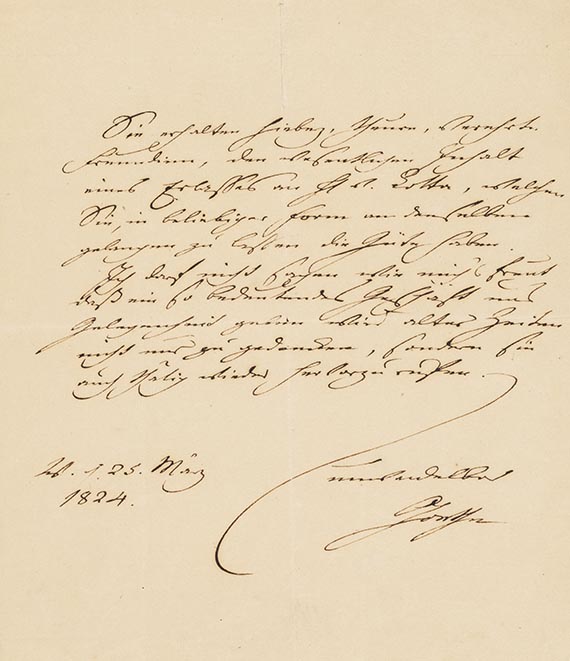 Sie erhalten hiebey, theure, verehrte
Freundinn, den wesentlichen Inhalt
eines Erlasses an H v. Cotta, welchen
Sie, in beliebiger Form an denselben
gelangen zu lassen die Güte haben.
Ich darf nicht sagen wie mich's freut
daß ein so bedeutendes Geschäft uns
Gelegenheit geben wird alter Zeiten
nicht nur zu gedenken, sondern sie
auch wieder hervorzurufen.
W. d. 25. März
1824.
unwandelbar
Goethe